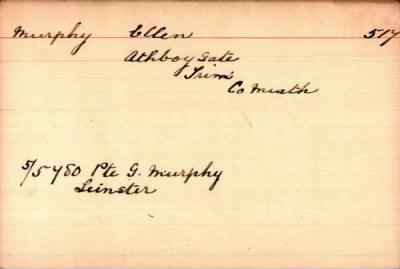 Murphy Ellen 517
Athboy Gate
Trim
Co Meath
5/5480 Pte G. Murphy
Leinster